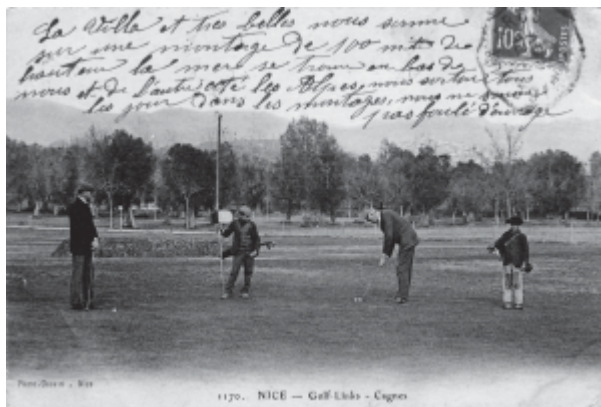 La Villa et tres belles nous somme
sur une montage de 100 mt de
hauteur la mere se trouve en bas de
nous et de l'autre coté les Alpes, nous sortons tous
les jour dans les montages, nous ne sommes
pas foulé d'ouvrage
10
1170. NICE — Golf-Links - Cagnes